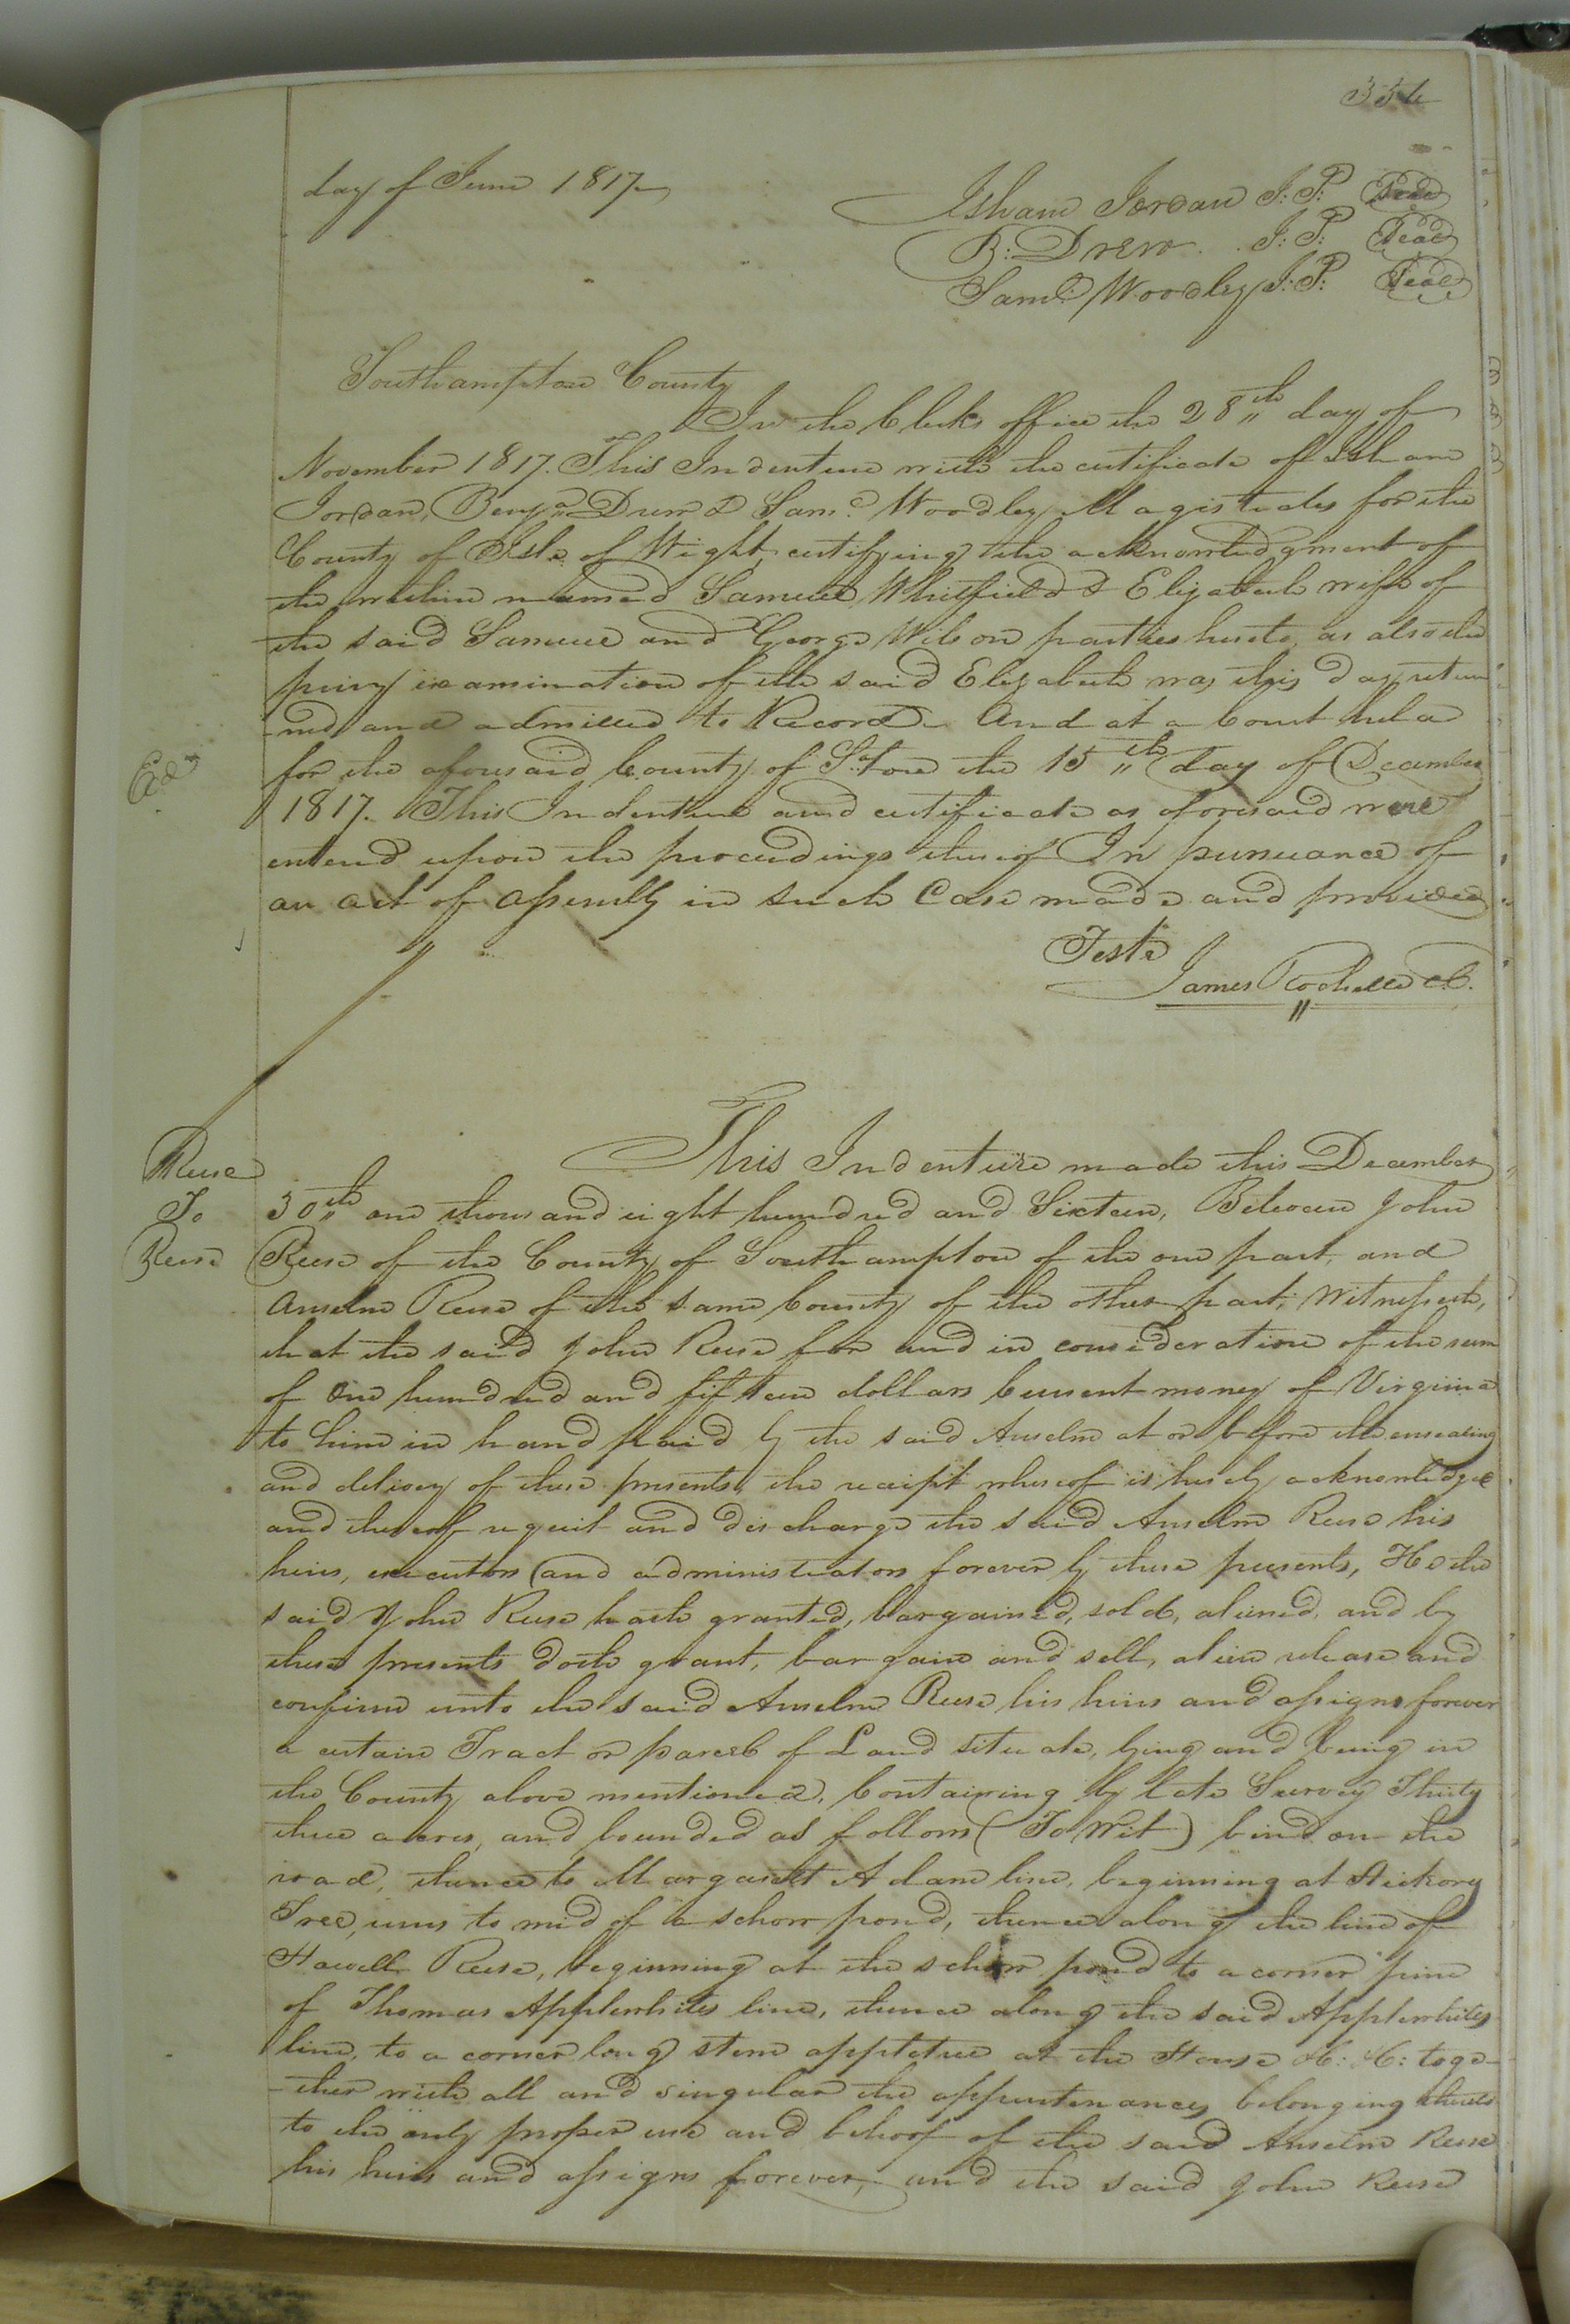 334
day of June 1817
Isham Jordan J: P: Seal
B: Drew J: P: Seal
Saml. Woodley J: P: Seal
Southampton County
In the Clerks office the 28th day of
November 1817. This Indenture with the certificate of Isham
Jordan, Benja. Drew & Sam. Woodley Magistrates for the
County of Isle of Wight, certifying the acknowledgment of
the within named Samuel Whitfield & Elizabeth wife of
the said Samuel and George Wilson parties hereto, as also the
privy examination of the said Elizabeth was this day return
-ned and admitted to Record. And at a Court held
for the aforesaid County of S.ton the 15th day of December
Exd
1817. This Indenture and certificate as aforesaid were
entered upon the proceedings thereof In pursuance of
an act of assembly in such Case made and provided
Teste
James Rochelle C.C.
This Indenture made this December
Reese
To
Reese
30th one thousand eight hundred and Sixteen, Between John
Reese of the County of Southampton of the one part, and
Anselm Reese of the same County of the other part; Witnesseth,
that the said John Reese for and in consideration of the sum
of One hundred and fifteen dollars Current money of Virginia
to him in hand paid by the said Anselm at or before the ensealing
and delivery of these presents, the receipt whereof is hereby acknowledge
and thereof requit and discharge the said Anselm Reese his
heirs, executors and administrators forever by these presents, He the
said John Reese hath granted, bargained, sold, aliened, and by
these presents doth grant, bargain and sell, alien release and
confirm unto the said Anselm Reese his heirs and assigns forever
a certain Tract or parcel of Land situate, lying and being in
the County above mentioned, Containing by late Survey Thirty
three acres, and bounded as follows (To Wit) bind on the
road, thence to Margaret Adams line, beginning at Hickory
Tree, runs to mid of a schow pond, thence along the line of
Howell Reese, beginning at the schow pond to a corner pine
of Thomas Applewhites line, thence along the said Applewhites
line, to a corner long stem appletree at the House toge-
-ther with all and singular the appurtenances belonging thereto
to the only proper use and behoof of the said Anselm Reese
his heirs and assigns forever, and the said John Reese